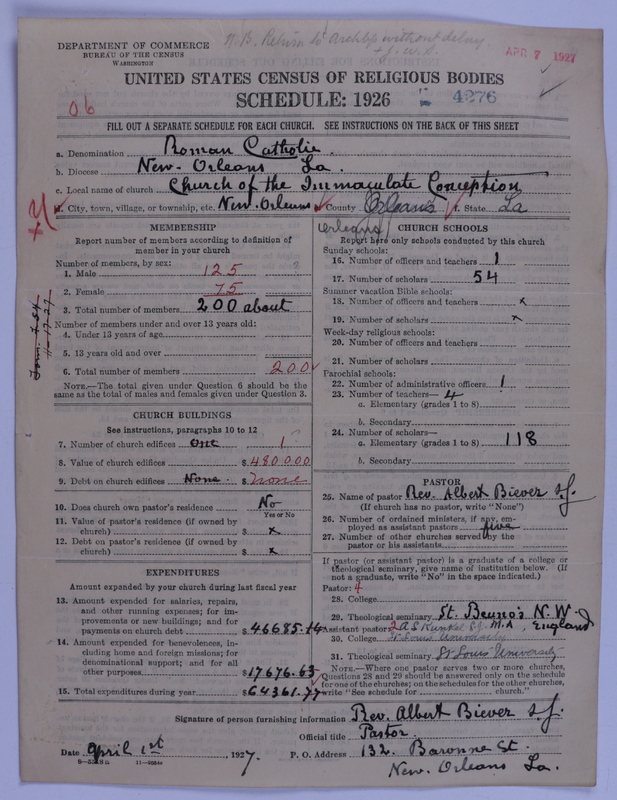 N.B. Return to Archbp without delay
+ J. W. S.
DEPARTMENT OF COMMERCE
BUREAU OF THE CENSUS
WASHINGTON
APR 7 1927
UNITED STATES CENSUS OF RELIGIOUS BODIES
SCHEDULE: 1926
4276
FILL OUT A SEPARATE SCHEDULE FOR EACH CHURCH. SEE INSTRUCTIONS ON THE BACK OF THIS SHEET
a. Denomination Roman Catholic
b. Diocese New Orleans La.
c. Local name of church Church of the Immaculate Conception
d. City, town, village, or township, etc. New Orleans e. County Orleans f. State La
Orleans
MEMBERSHIP
Report number of members according to definition of
member in your church
Number of members, by sex:
1. Male 125
2. Female 75
3. Total number of members 200 about
Number of members under and over 13 years old:
4. Under 13 years of age
5. 13 years old and over
6. Total number of members 200
NOTE.—The total given under Question 6 should be the
same as the total of males and females given under Question 3.
11-17-27
CHURCH BUILDINGS
See instructions, paragraphs 10 to 12
7. Number of church edifices One 1
8. Value of church edifices $ 480000
9. Debt on church edifices None $ none
10. Does church own pastor's residence No
Yes or No
11. Value of pastor's residence (if owned by
church) $ x
12. Debt on pastor's residence (if owned by
church) $ x
EXPENDITURES
Amount expended by your church during last fiscal year
13. Amount expended for salaries, repairs,
and other running expenses; for im-
provements or new buildings; and for
payments on church debt $46685.14
14. Amount expended for benevolences, in-
cluding home and foreign missions; for
denominational support; and for all
other purposes $17676.63
15. Total expenditures during year $64361.77
CHURCH SCHOOLS
Report here only schools conducted by this church
Sunday schools:
16. Number of officers and teachers 1
17. Number of scholars 54
Summer vacation Bible schools:
18. Number of officers and teachers x
19. Number of scholars x
Week-day religious schools:
20. Number of officers and teachers
21. Number of scholars
Parochial schools:
22. Number of administrative officers 1
23. Number of teachers— 4
a. Elementary (grades 1 to 8)
b. Secondary
24. Number of scholars—
a. Elementary (grades 1 to 8) 118
b. Secondary
PASTOR
25. Name of pastor Rev. Albert Biever S.J.
(If church has no pastor, write "None")
26. Number of ordained ministers, if any, em-
ployed as assistant pastors five
27. Number of other churches served by the
pastor or his assistants
If pastor (or assistant pastor) is a graduate of a college or
theological seminary, give name of institution below. (If
not a graduate, write "No" in the space indicated.)
Pastor:
28. College
29. Theological seminary St. Beuno's N. W
Assistant pastor: M.A. England
30. College St Louis University
31. Theological seminary St Louis University
NOTE.—Where one pastor serves two or more churches,
Questions 28 and 29 should be answered only on the schedule
for one of the churches; on the schedules for the other churches,
write "See schedule for church."
Signature of person furnishing information Rev. Albert Biever S.J.
Official title Pastor
Date April 1st, 1927. P. O. Address 132. Baronne St.
New Orleans La.